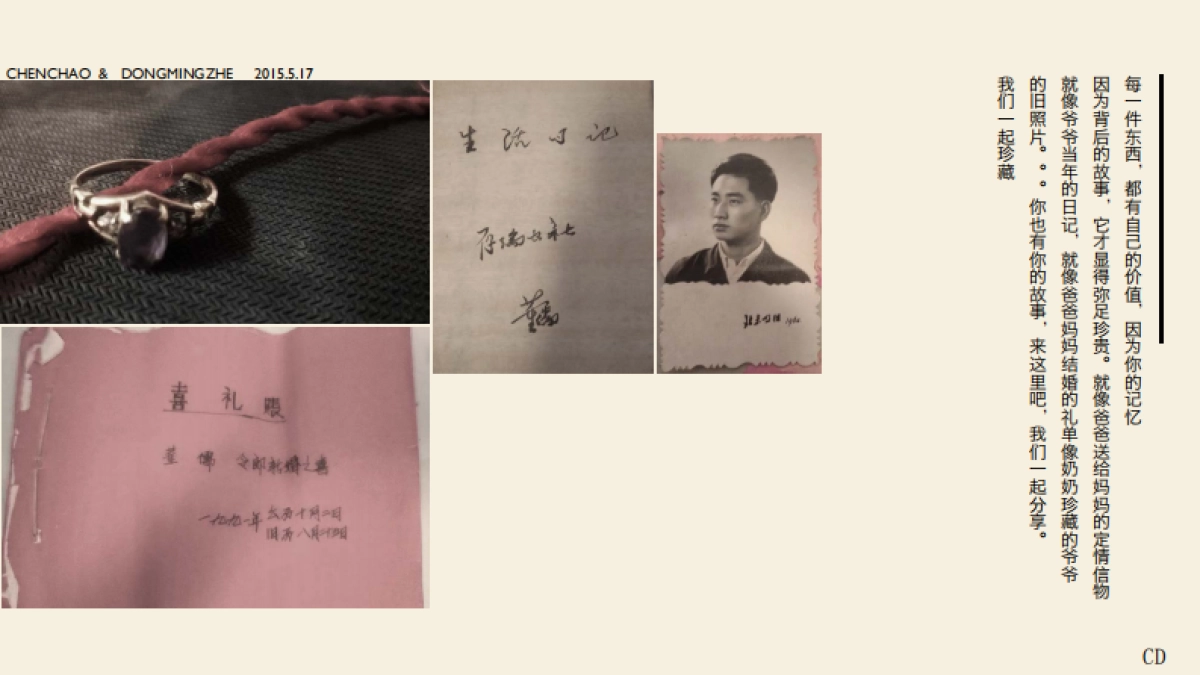 CHENCHAO & DONGMINGZHE 2015.5.17
生活日记
喜礼账
令郎新婚之喜
一九九一年 公历十月二日
旧历八月廿四日
1960
每一件东西，都有自己的价值，因为你的记忆
因为背后的故事，它才显得弥足珍贵。就像爸爸送给妈妈的定情信物
就像爷爷当年的日记，就像爸爸妈妈结婚的礼单像奶奶珍藏的爷爷
的旧照片。。。你也有你的故事，来这里吧，我们一起分享。
我们一起珍藏
CD